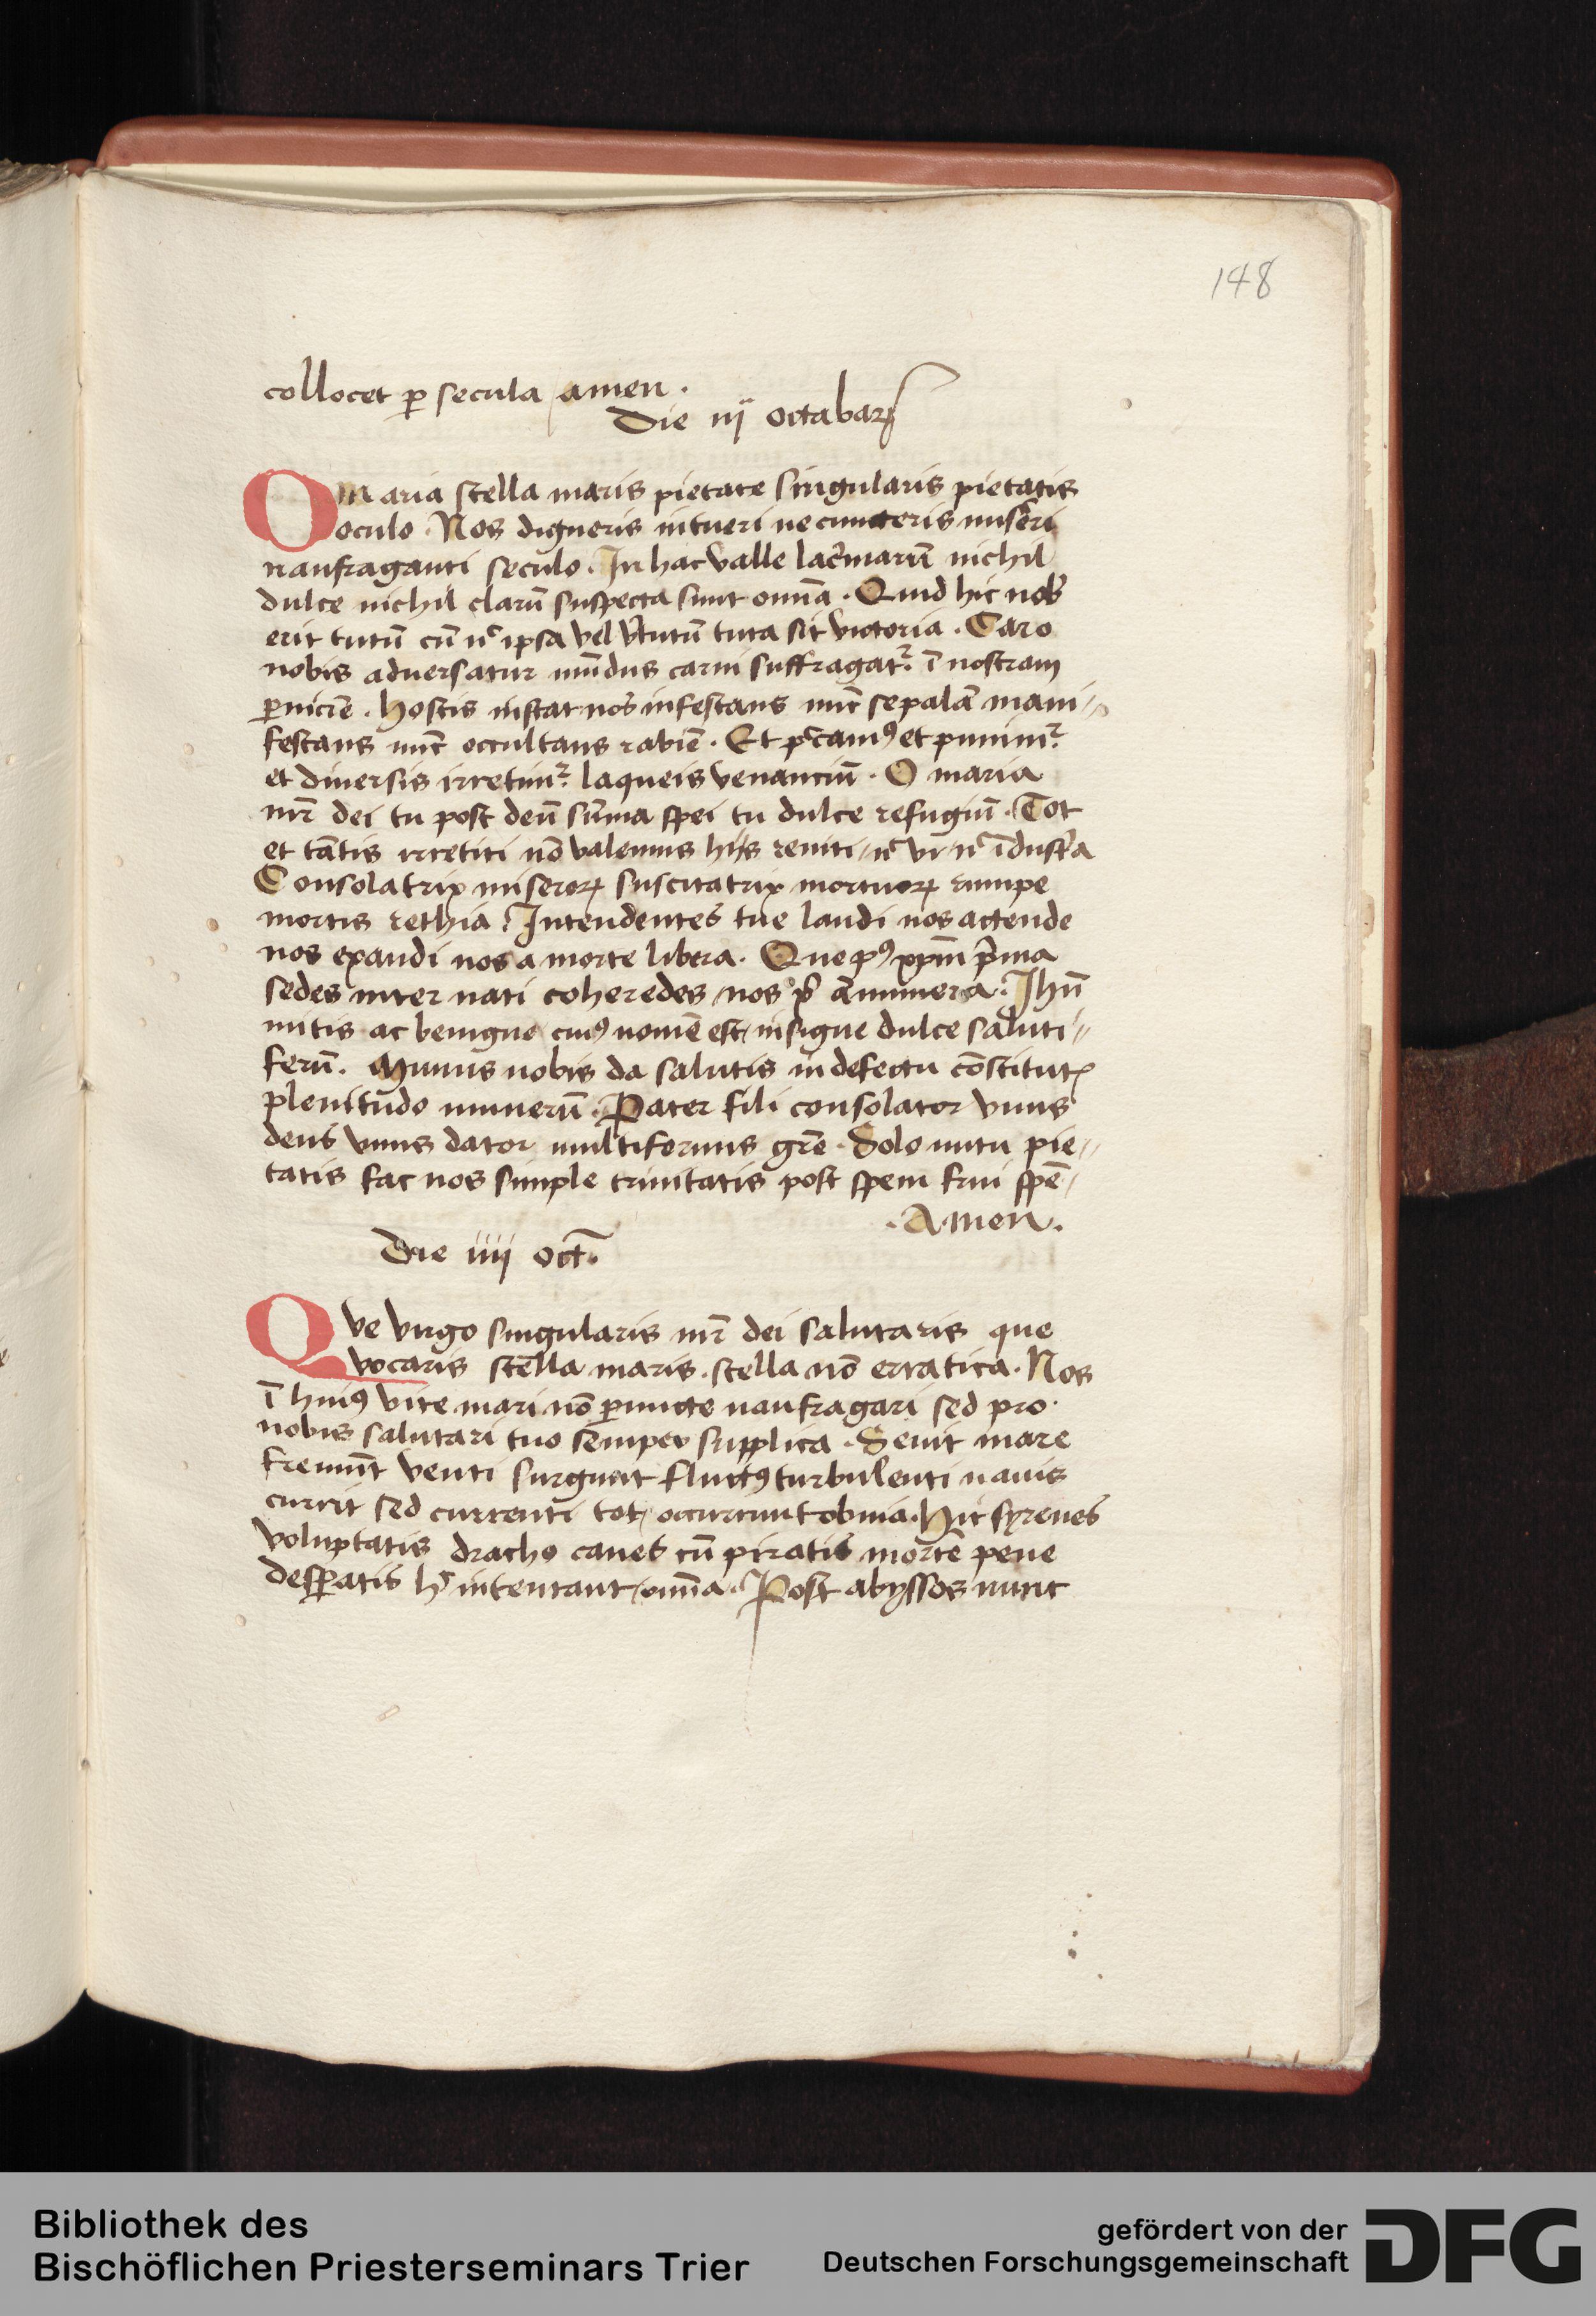 148
collocet ꝑ secula amen .
Die iij octabarꝝ
O maria stella maris pietate singularis pietatis
oculo . Nos digneris intueri ne cuncteris miseri
naufraganti seculo . In hac valle lac̄marū nichil
dulce nichil clarū suspecta sunt om̄a . Quid hic nob̄
erit tutū cū nͨ ipsa vel v̄tutū tuta sit victoria . Caro
nobis aduersatur mūdus carni suffragatᷣ ī nostram
ꝑniciē . Hostis instat nob̄ infestans nūc se palā mani//
festans nūc occultans rabiē . Et pͨcamꝰ et punimᷣ
et diuersis irretimᷣ laqueis venanciū . O maria
mr̄ dei tu post deū sūma spei tu dulce refugiū . Tot
et tātis irretiti nō valemus hijs reniti / nͨ vi / nͨ īdust̄a
Consolatrix miseroꝝ suscitatrix mortuoꝝ rumpe
mortis rethia . Intendentes tue laudi nos attende
nos exaudi nos a morte libera . Que pꝰ xpm̄ p̄ma
sedes inter nati coheredes nos annumera . Ihū
mitis ac benigne cuiꝰ nomē est insigne dulce saluti//
ferū . Munus nobis da salutis in defectu cōstitutꝭ
plenitudo munerū . Pater fili consolator vnus
deus vnus dator multiformis gr̄e . Solo nutu pie//
tatis fac nos simple trinitatis post spem frui spē/
. Amen .
Die iiij oct̄ .
Qve virgo singularis mr̄ dei salutaris que
vocaris stella maris . stella nō erratica . Nos
ī huiꝰ vite mari nō ꝑmitte naufragari sed pro
nobis salutari tuo semper supplica . Seuit mare
fremūt venti surgunt fluctꝰ turbulenti nauis
currit sed currenti tot occurrunt obuia . Hic syrenes
voluptatis dracho canes cū piratis mortē pene
desꝑatis intentant om̄a . Post abyssos nunc
Bibliothek des
Bischöflichen Priesterseminars Trier
gefördert von der
Deutschen Forschungsgemeinschaft
DFG